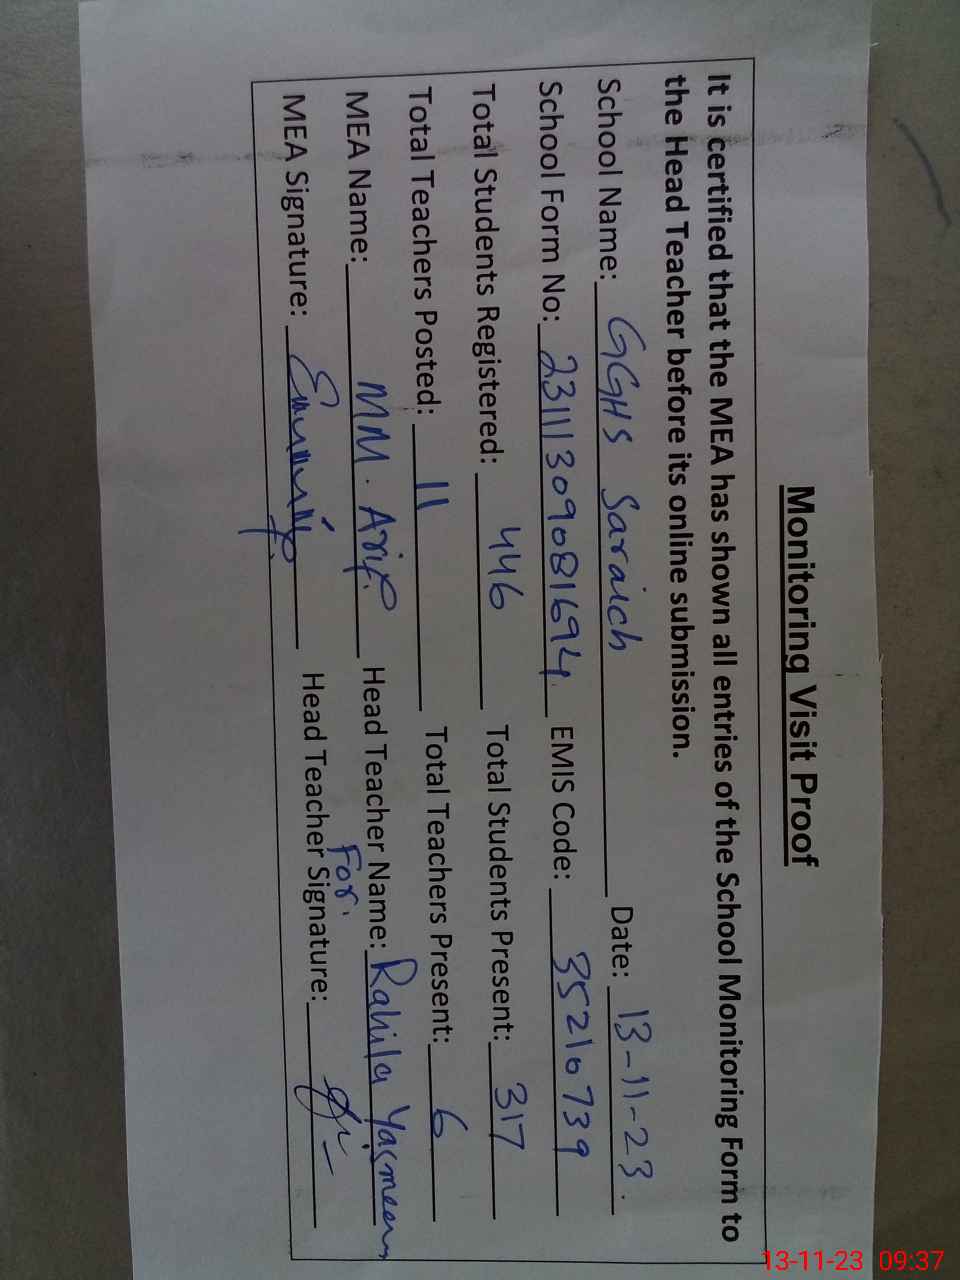 Monitoring Visit Proof
It is certified that the MEA has shown all entries of the School Monitoring Form to
the Head Teacher before its online submission.
School Name: GGHS Saraich Date: 13-11-23.
School Form No: 23111309081694 EMIS Code: 35210739
Total Students Registered: 446 Total Students Present: 317
Total Teachers Posted: 11 Total Teachers Present: 6
MEA Name: MM. Arif Head Teacher Name: Rahila Yasmeen
For.
MEA Signature: Head Teacher Signature:
13-11-23 09:37